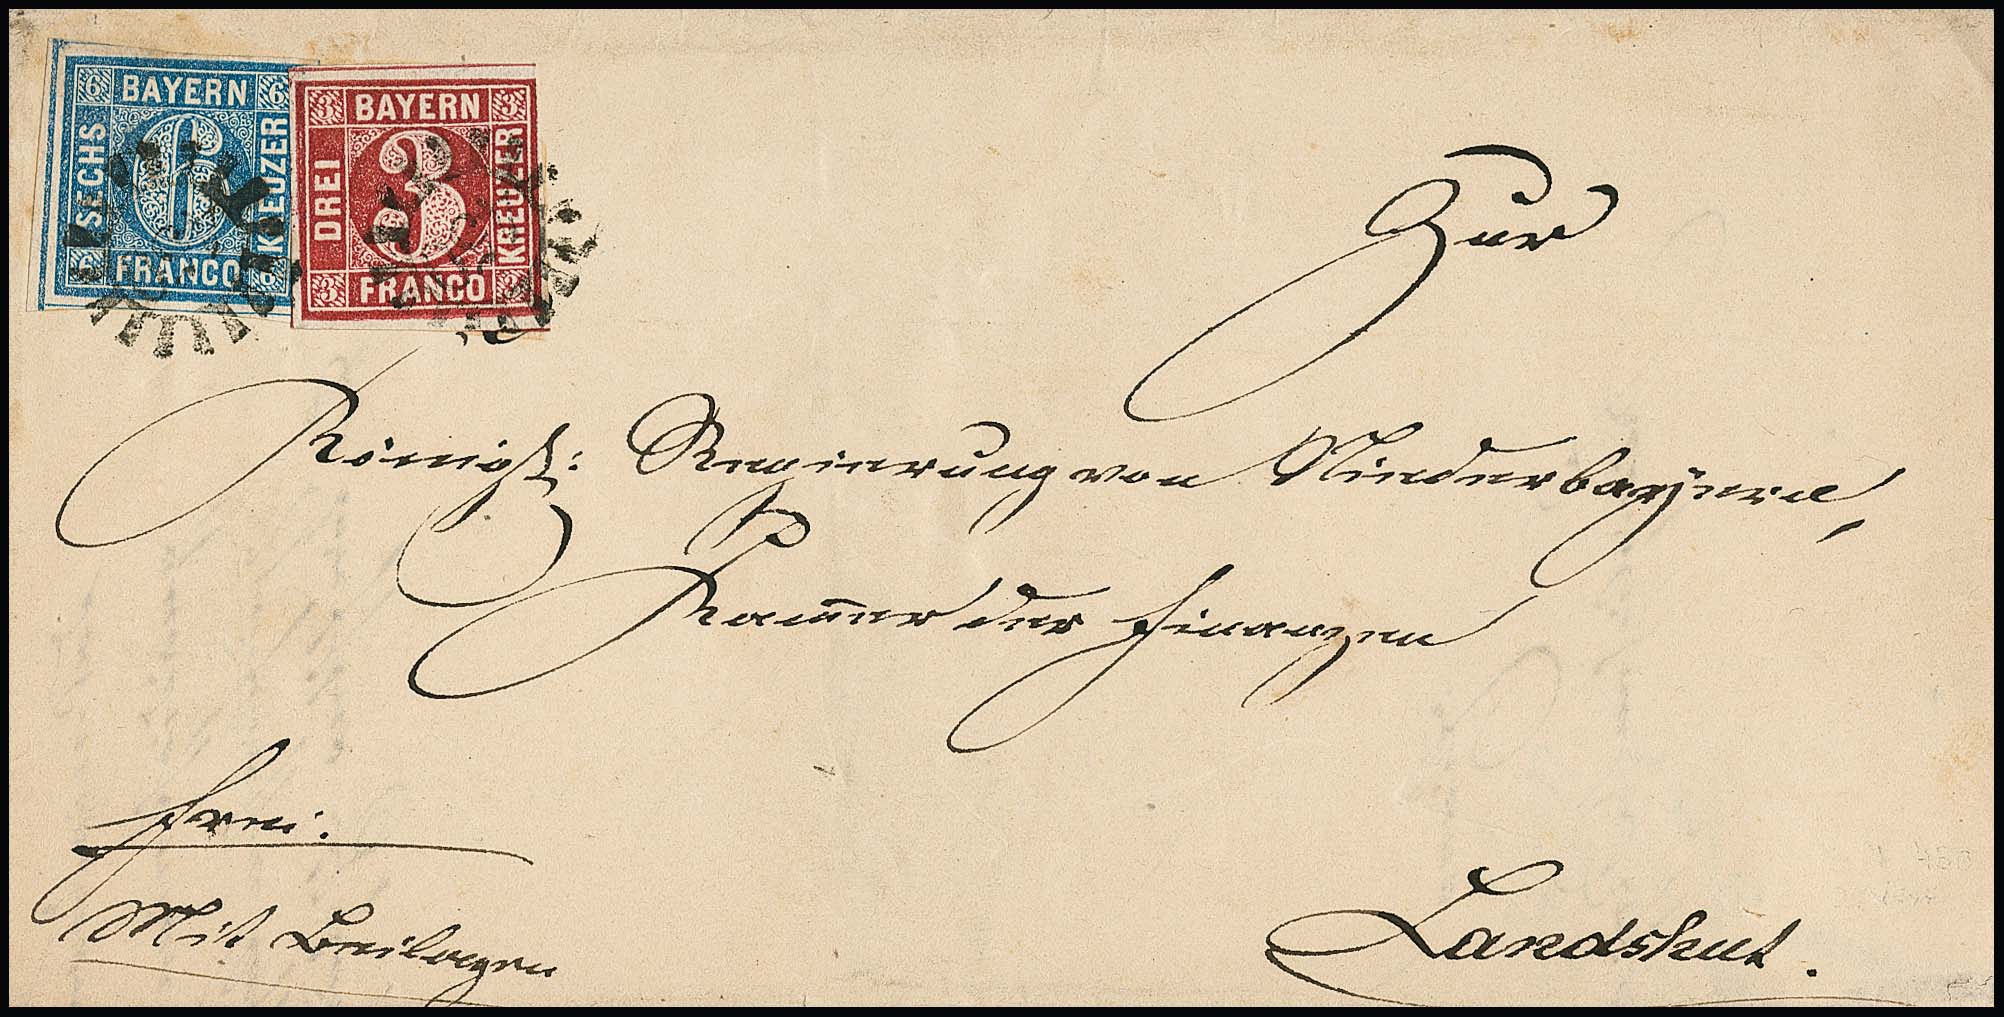 6 BAYERN 6
SECHS
6
KREUZER
6 FRANCO 6
3 BAYERN 3
DREI
3
KREUZER
3 FRANCO 3
Zur
Königl: Regierung von Niederbayern,
Kammer der Finanzen
frei.
Mit Beilagen
Landshut.